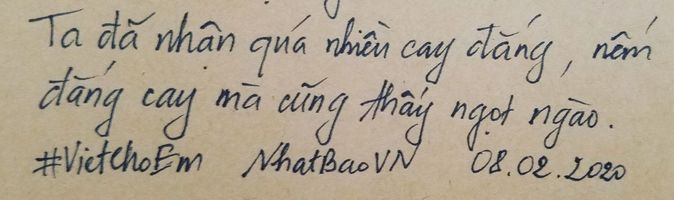 Ta đã nhận quá nhiều cay đắng, nếm
đắng cay mà cũng thấy ngọt ngào.
#VietChoEm NhatBaoVN 08.02.2020